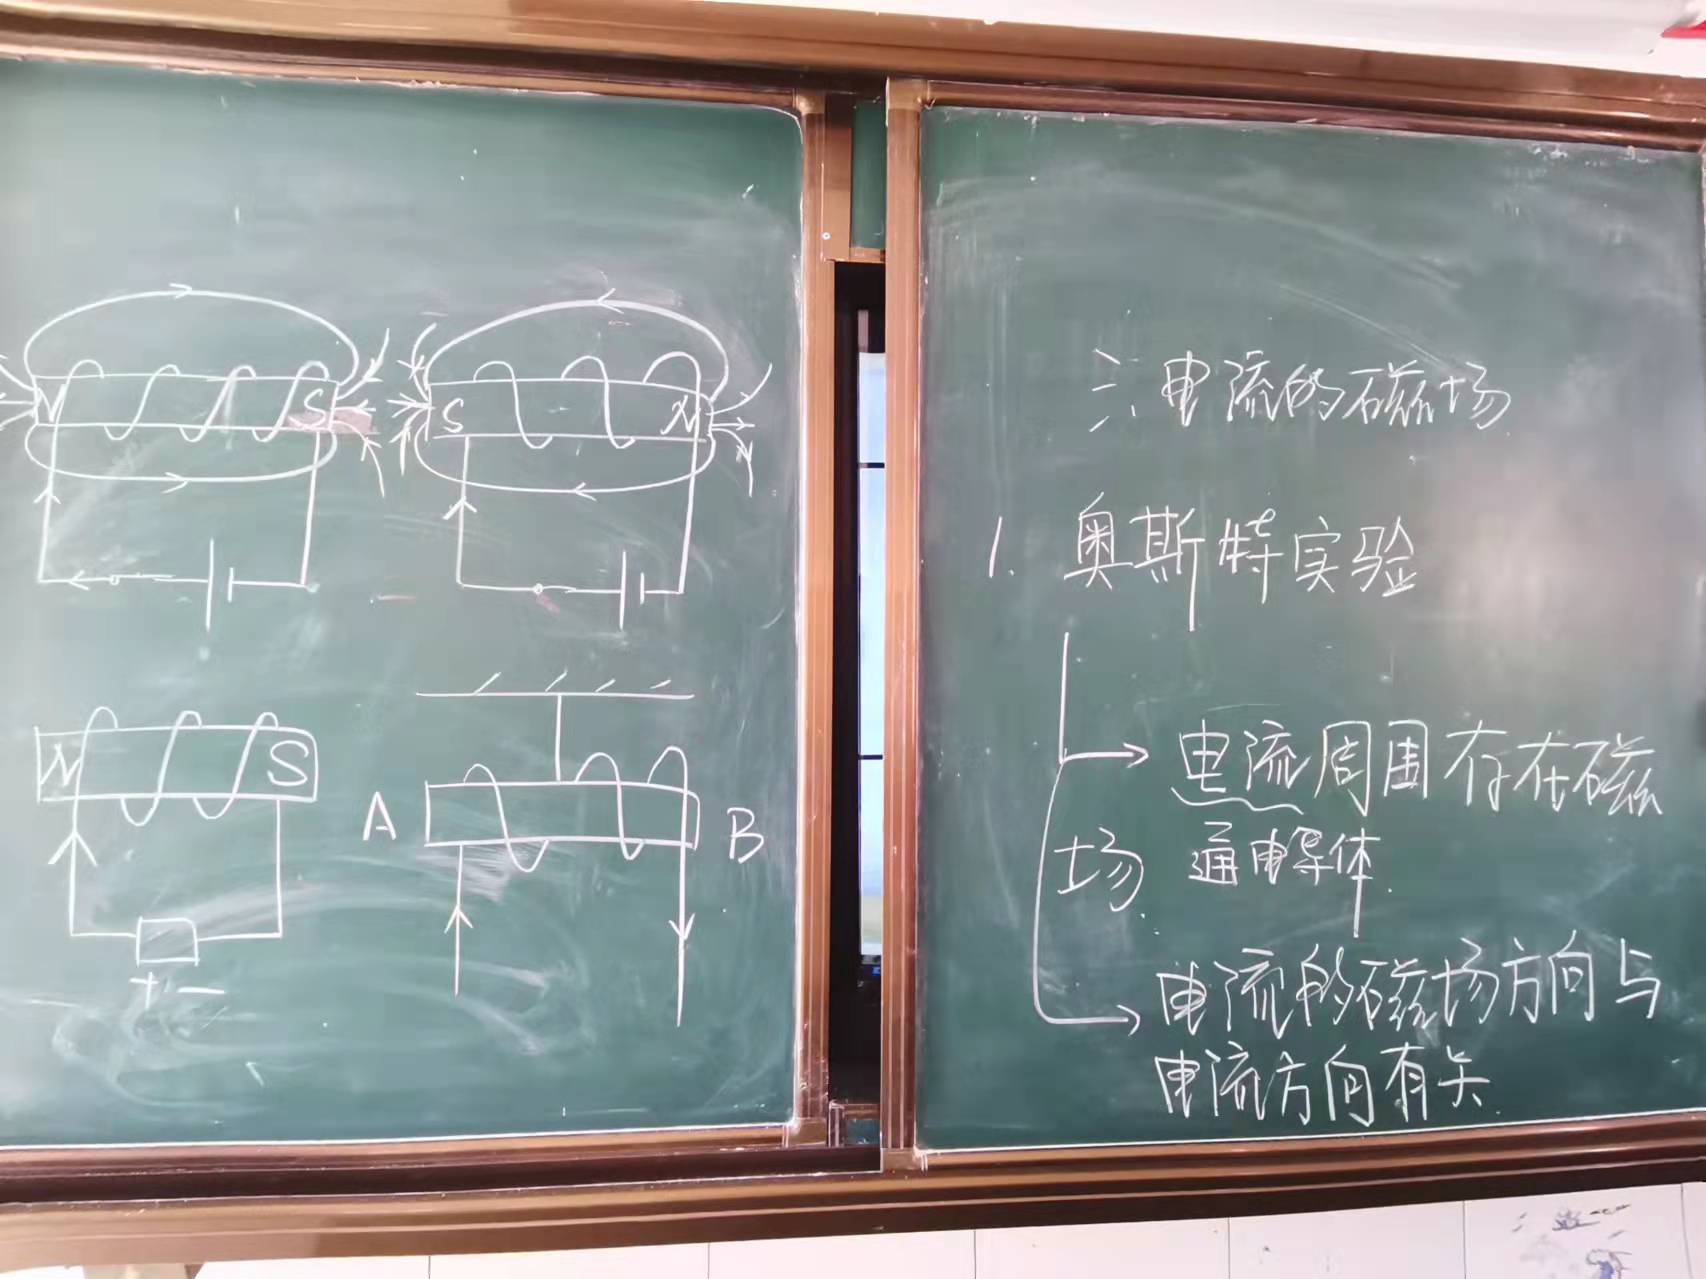 N S
S N
N S
+ −
A B
二、电流的磁场
1. 奥斯特实验
电流周围存在磁
场. 通电导体.
电流的磁场方向与
电流方向有关.